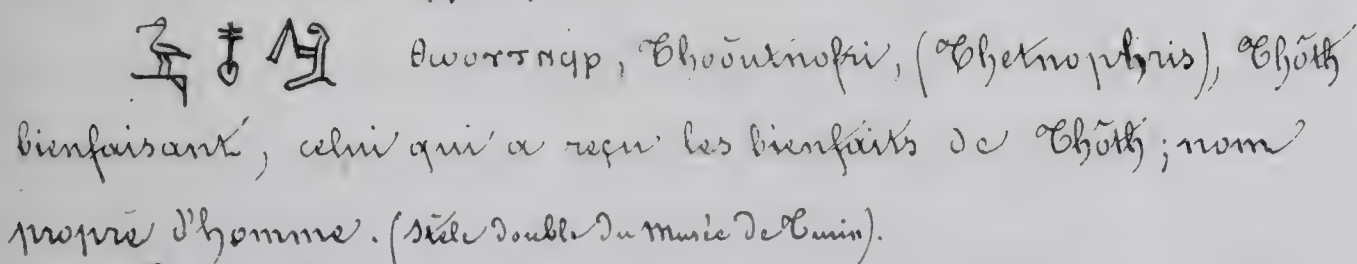 𓅝 𓄤 𓀻 ⲑⲱⲟⲩⲧⲛϥⲣ, Thôoutnofri, (Thetnophris), Thôth
bienfaisant, celui qui a reçu les bienfaits de Thôth; nom
propre d'homme. (Stèle double du Musée de Turin).